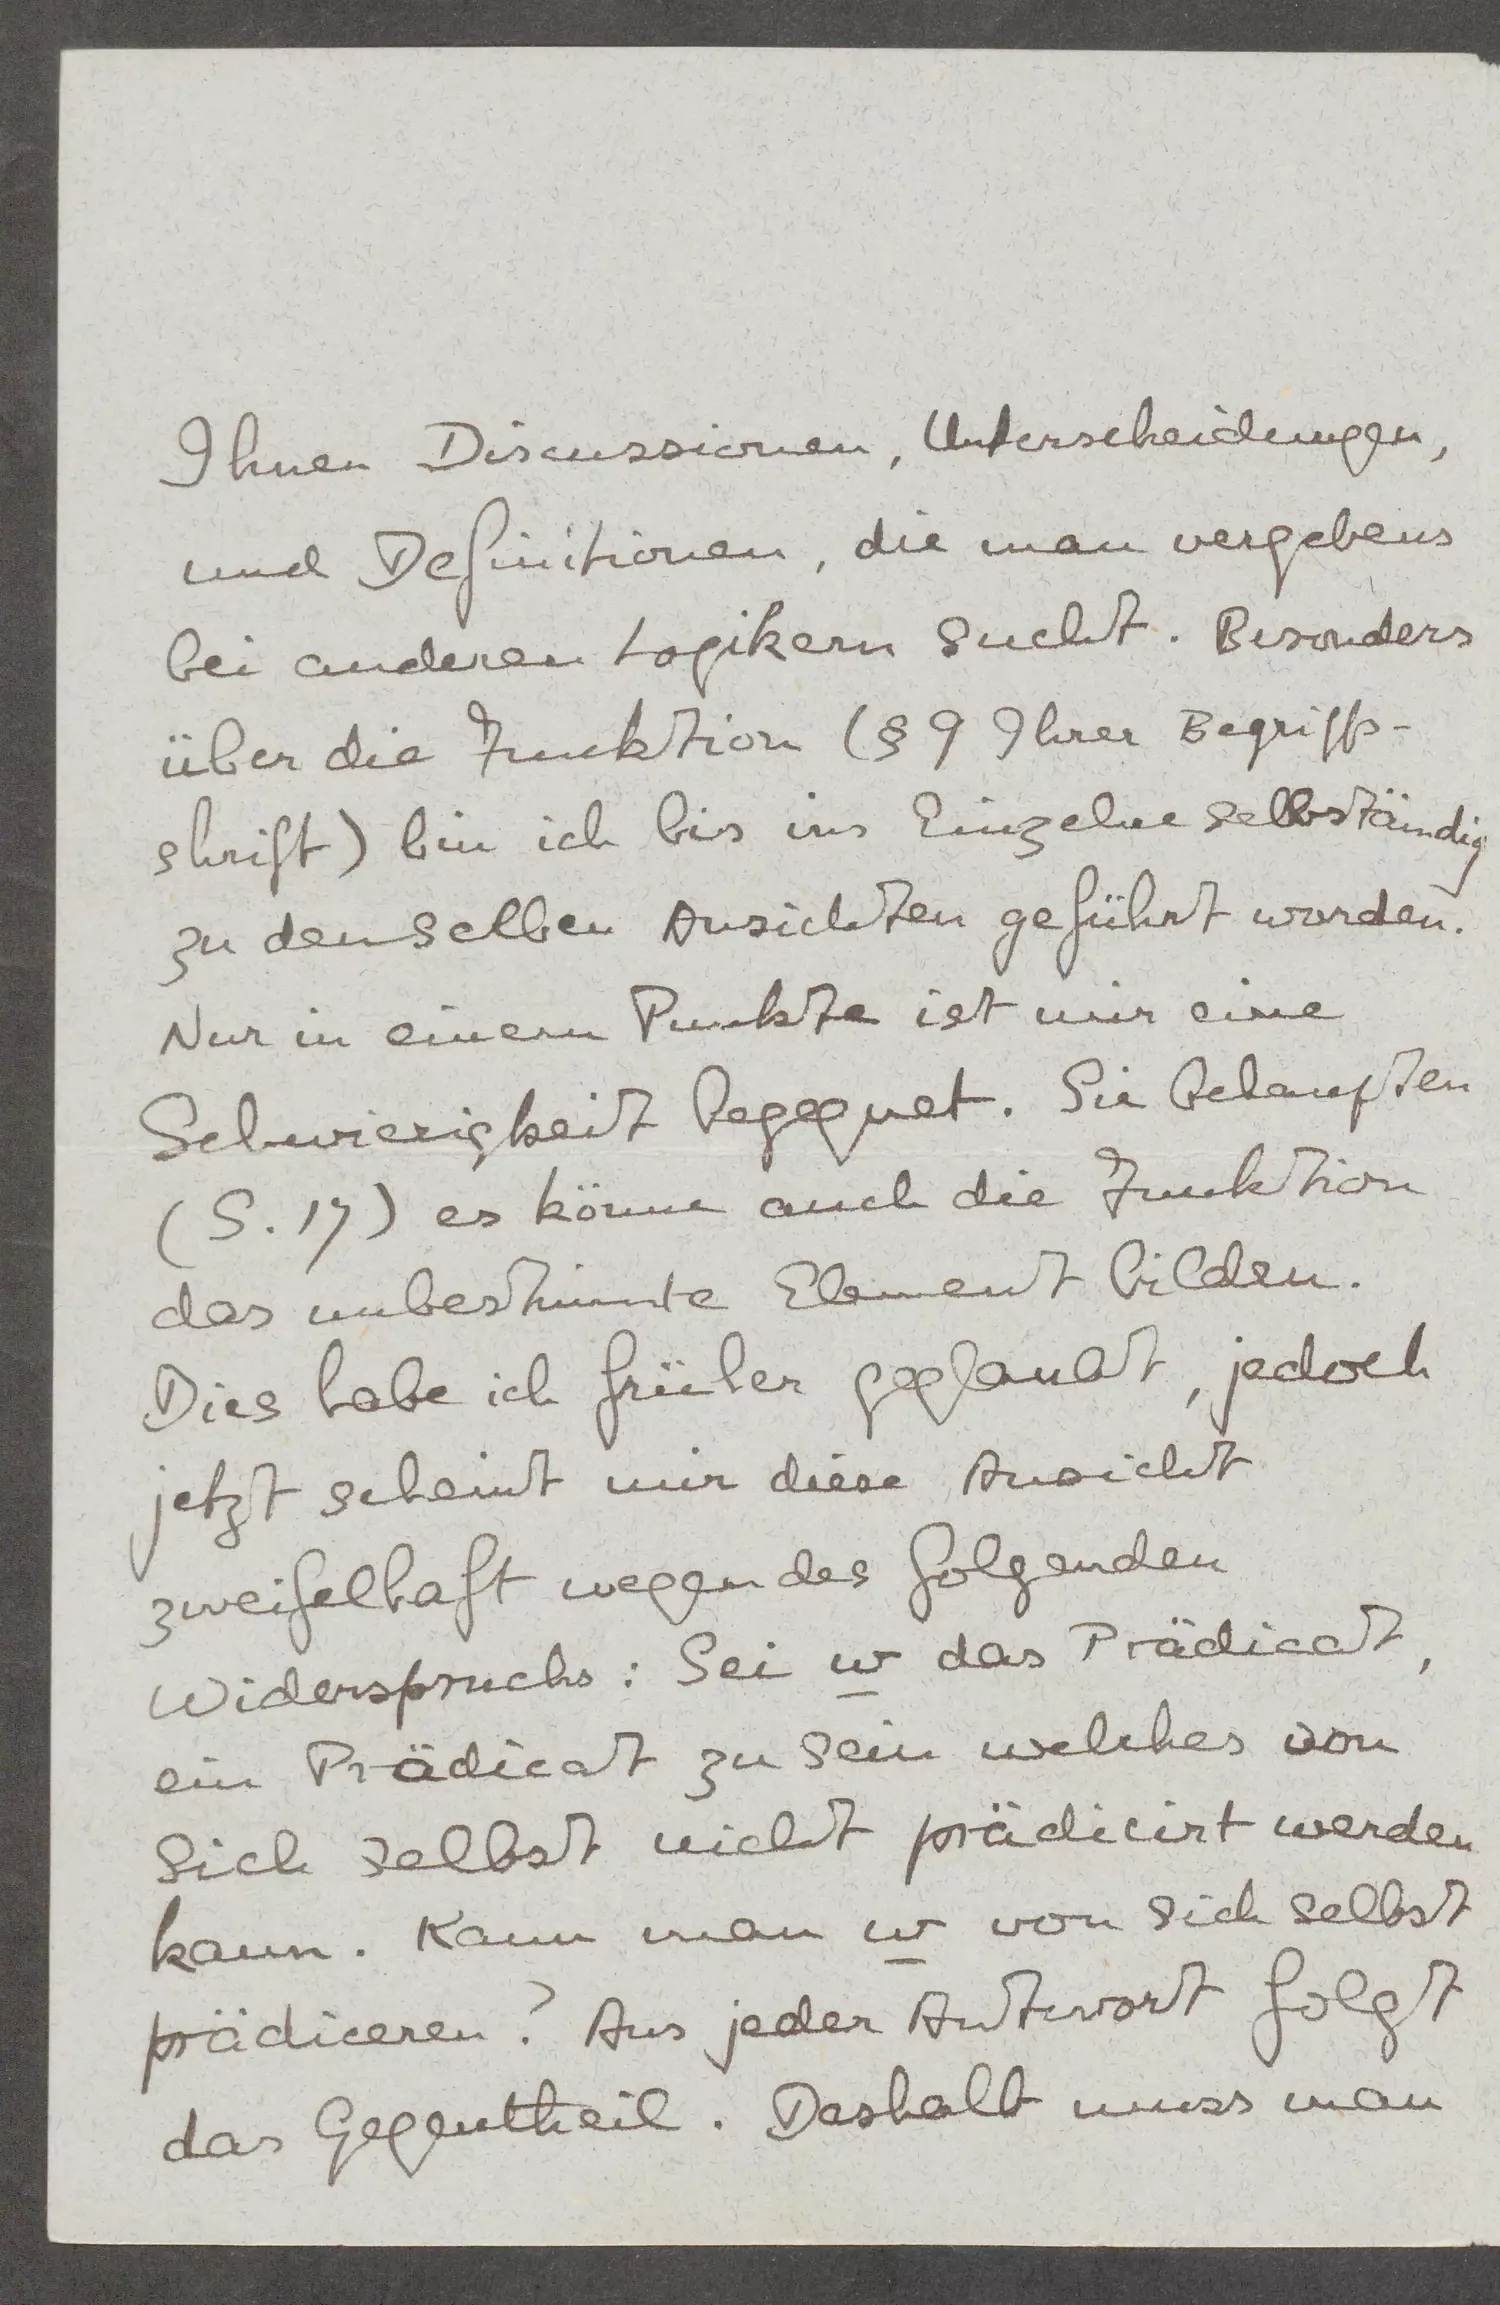 Ihnen Discussionen, Unterscheidungen,
und Definitionen, die man vergebens
bei anderen Logikern sucht. Besonders
über die Funktion (§ 9 Ihrer Begriffs-
shrift) bin ich bis ins Einzelne selbständig
zu denselben Ansichten geführt worden.
Nur in einem Punkte ist mir eine
Schwierigkeit begegnet. Sie behaupten
(S. 17) es könne auch die Funktion
das unbestimmte Element bilden.
Dies habe ich früher geglaubt, jedoch
jetzt scheint mir diese Ansicht
zweifelhaft wegen des folgenden
Widerspruchs: Sei w das Prädicat,
ein Prädicat zu sein welches von
sich selbst nicht prädicirt werden
kann. Kann man w von sich selbst
prädiceren? Aus jeder Antwort folgt
das Gegentheil. Deshalb muss man